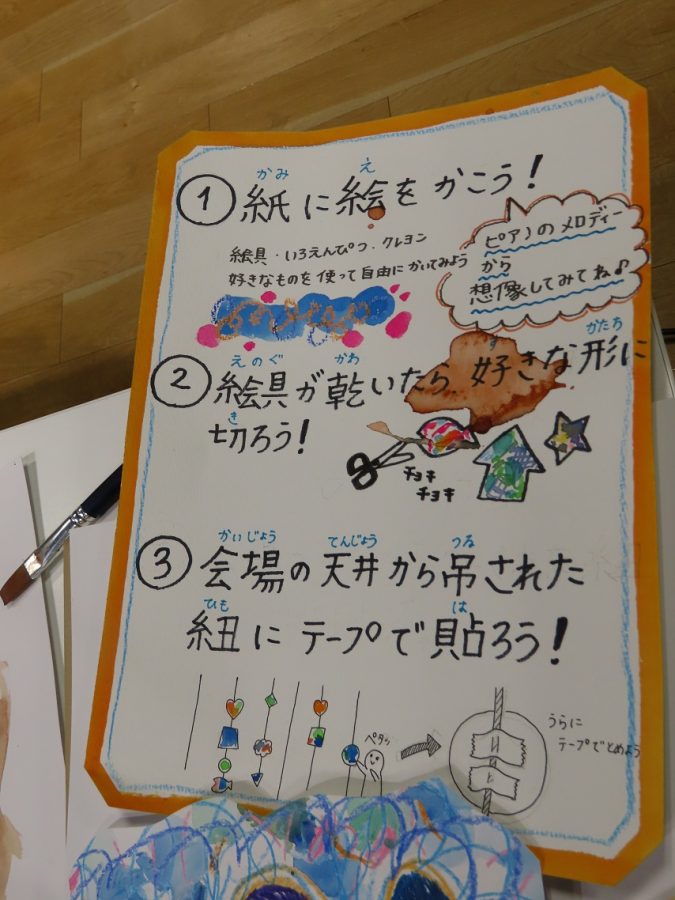 かみ え
① 紙に絵をかこう!
絵具・いろえんぴつ・クレヨン
好きなものを使って自由にかいてみよう
ピアノのメロディー
から
想像してみてね♪
えのぐ かわ す かたち
② 絵具が乾いたら 好きな形に
き
切ろう!
チョキ
チョキ
かいじょう てんじょう つる
③ 会場の天井から吊された
ひも は
紐にテープで貼ろう!
ペタッ
うらに
テープでとめよう